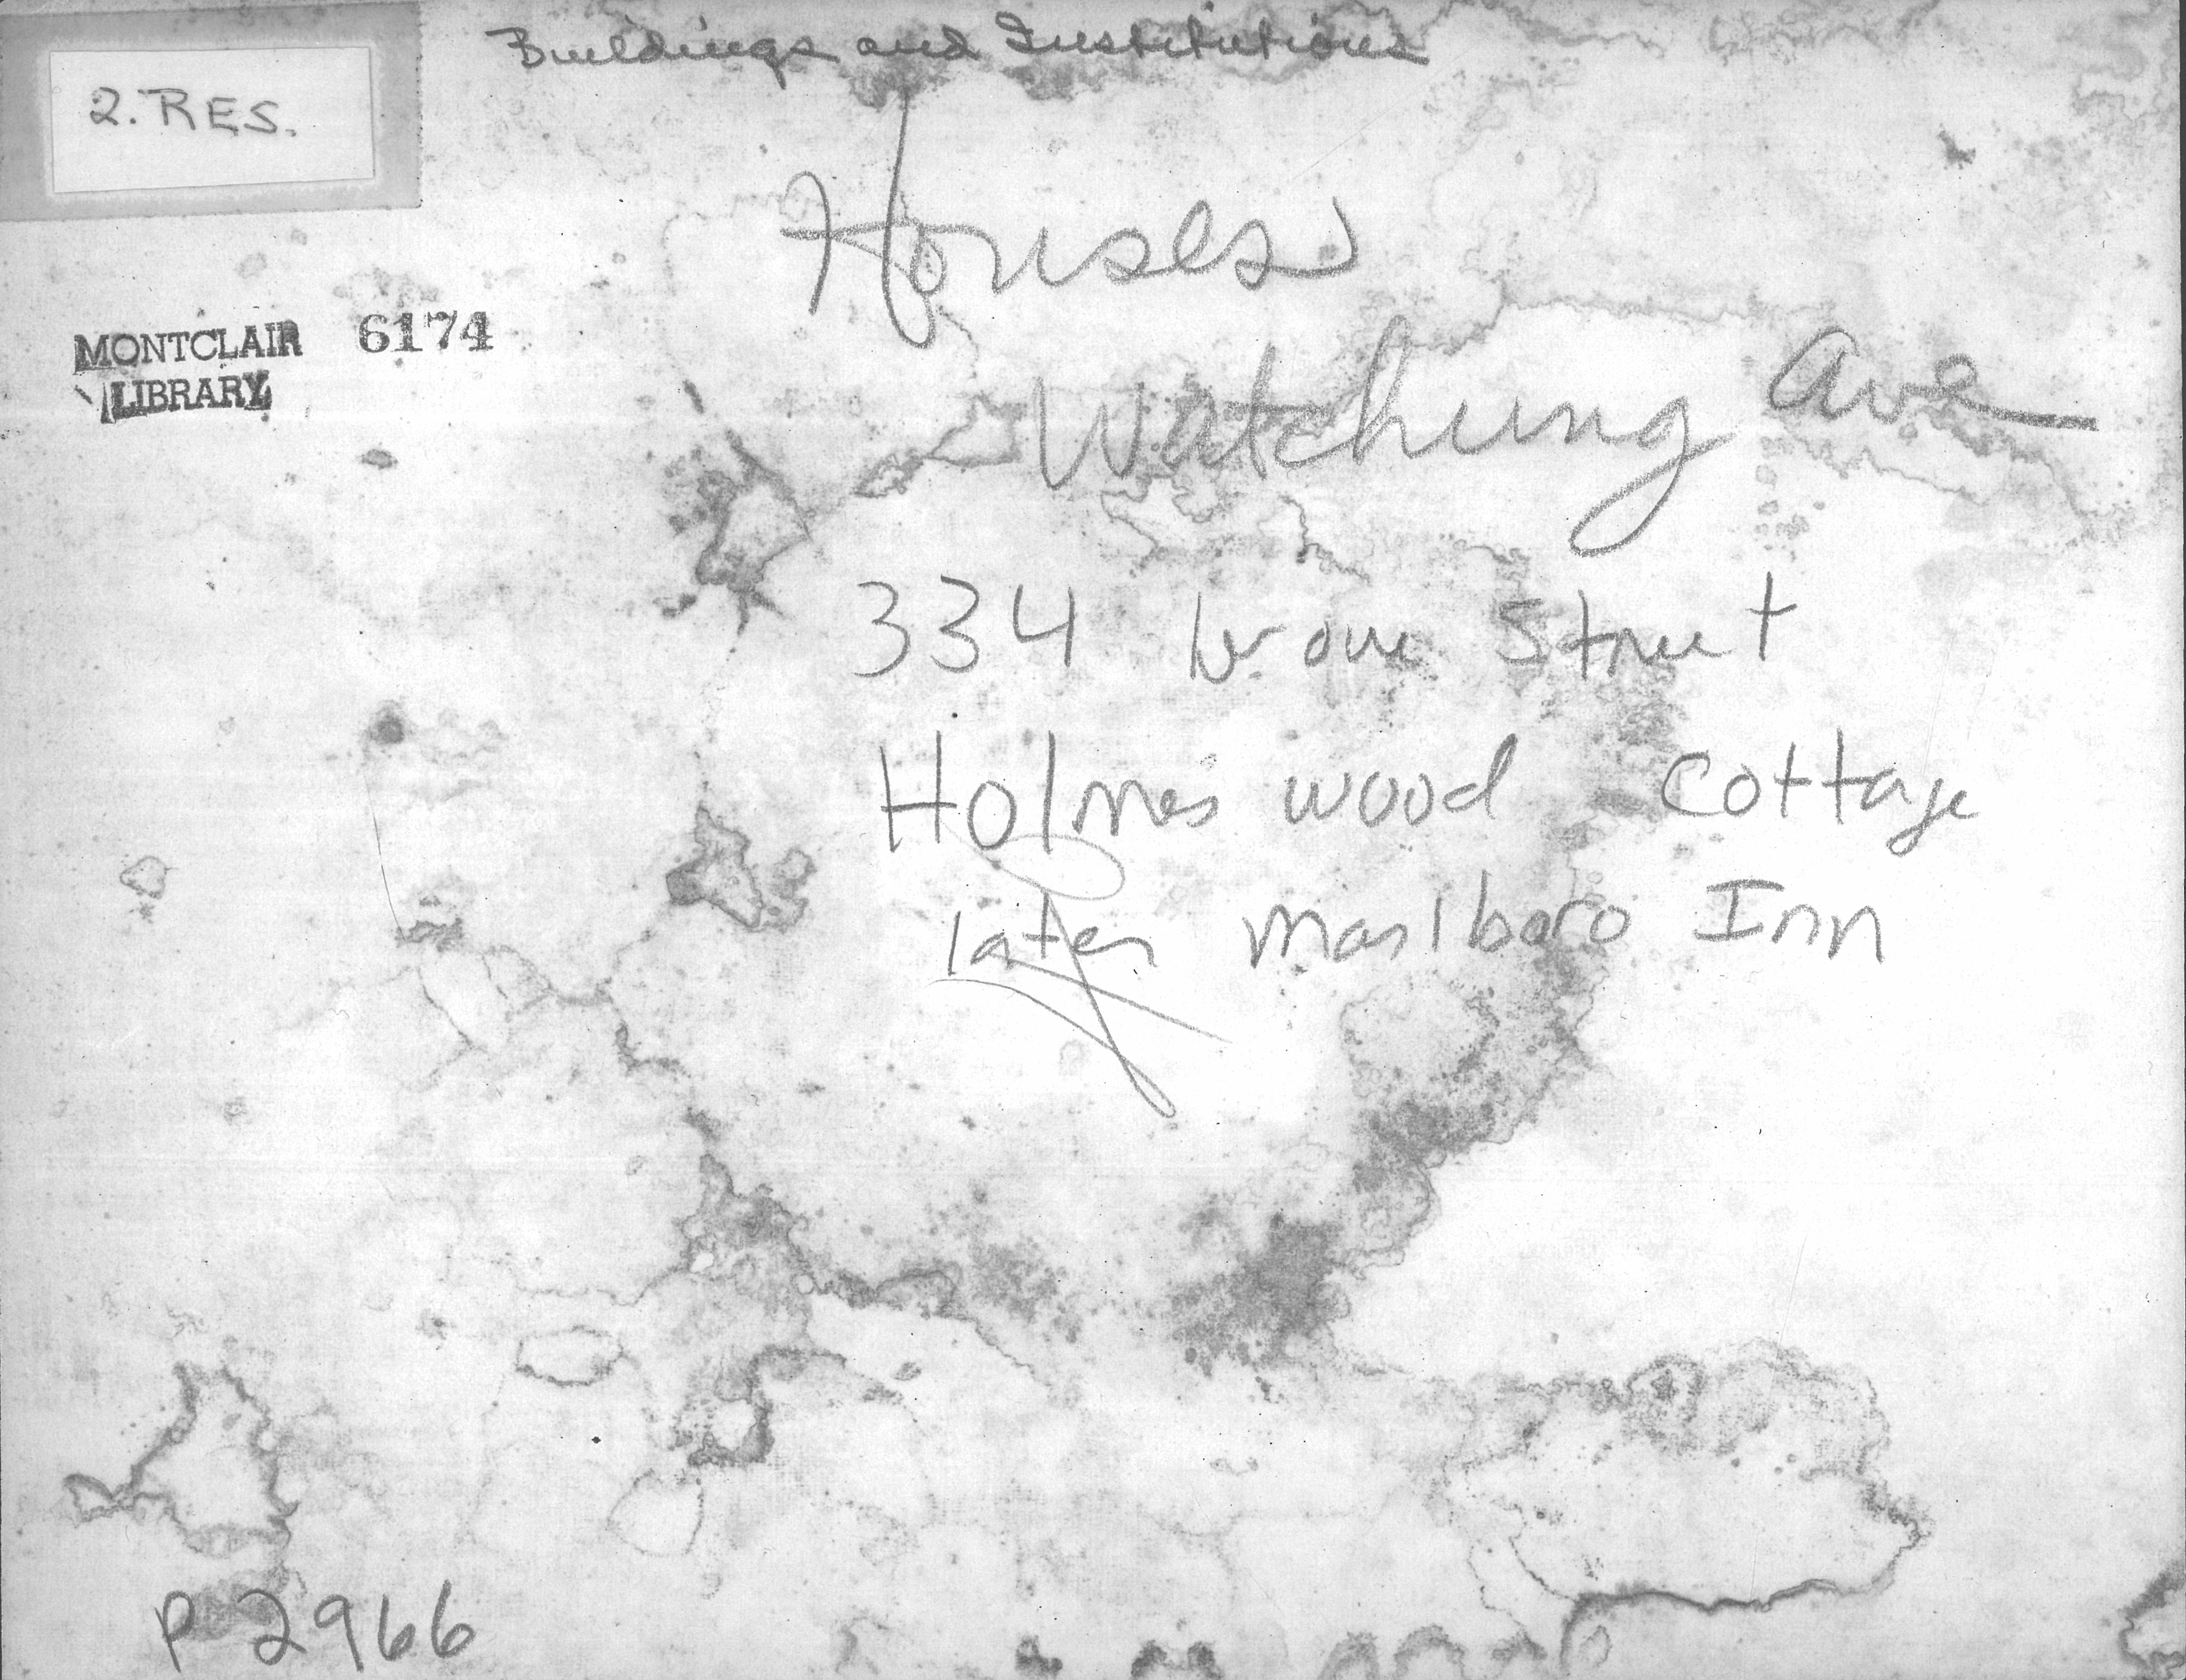 Buildings and Institutions
2. RES.
Houses
MONTCLAIR 6174
LIBRARY
Watchung Ave
334 Grove Street
Holmes wood Cottage
later Marlboro Inn
P 2966